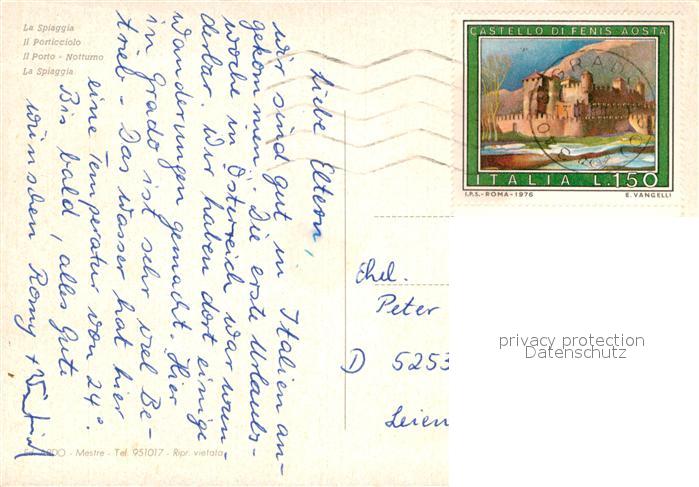 La Spiaggia
Il Porticciolo
Il Porto - Notturno
La Spiaggia
Liebe Eltern,
wir sind gut in Italien an-
gekommen. Die erste Urlaubs-
woche in Österreich war wun-
derbar. Wir haben dort einige
Wanderungen gemacht. Hier
in Grado ist sehr viel Be-
trieb - Das Wasser hat hier
eine Temperatur von 24°.
Bis bald, alles Gute
wünschen Romy +
ARDO - Mestre - Tel. 951017 - Ripr. vietata
CASTELLO DI FENIS-AOSTA
GRADO
ITALIA L.150
I.P.S.-ROMA-1976 E. VANGELLI
Ehel.
Peter
D 5253
Leien
privacy protection
Datenschutz